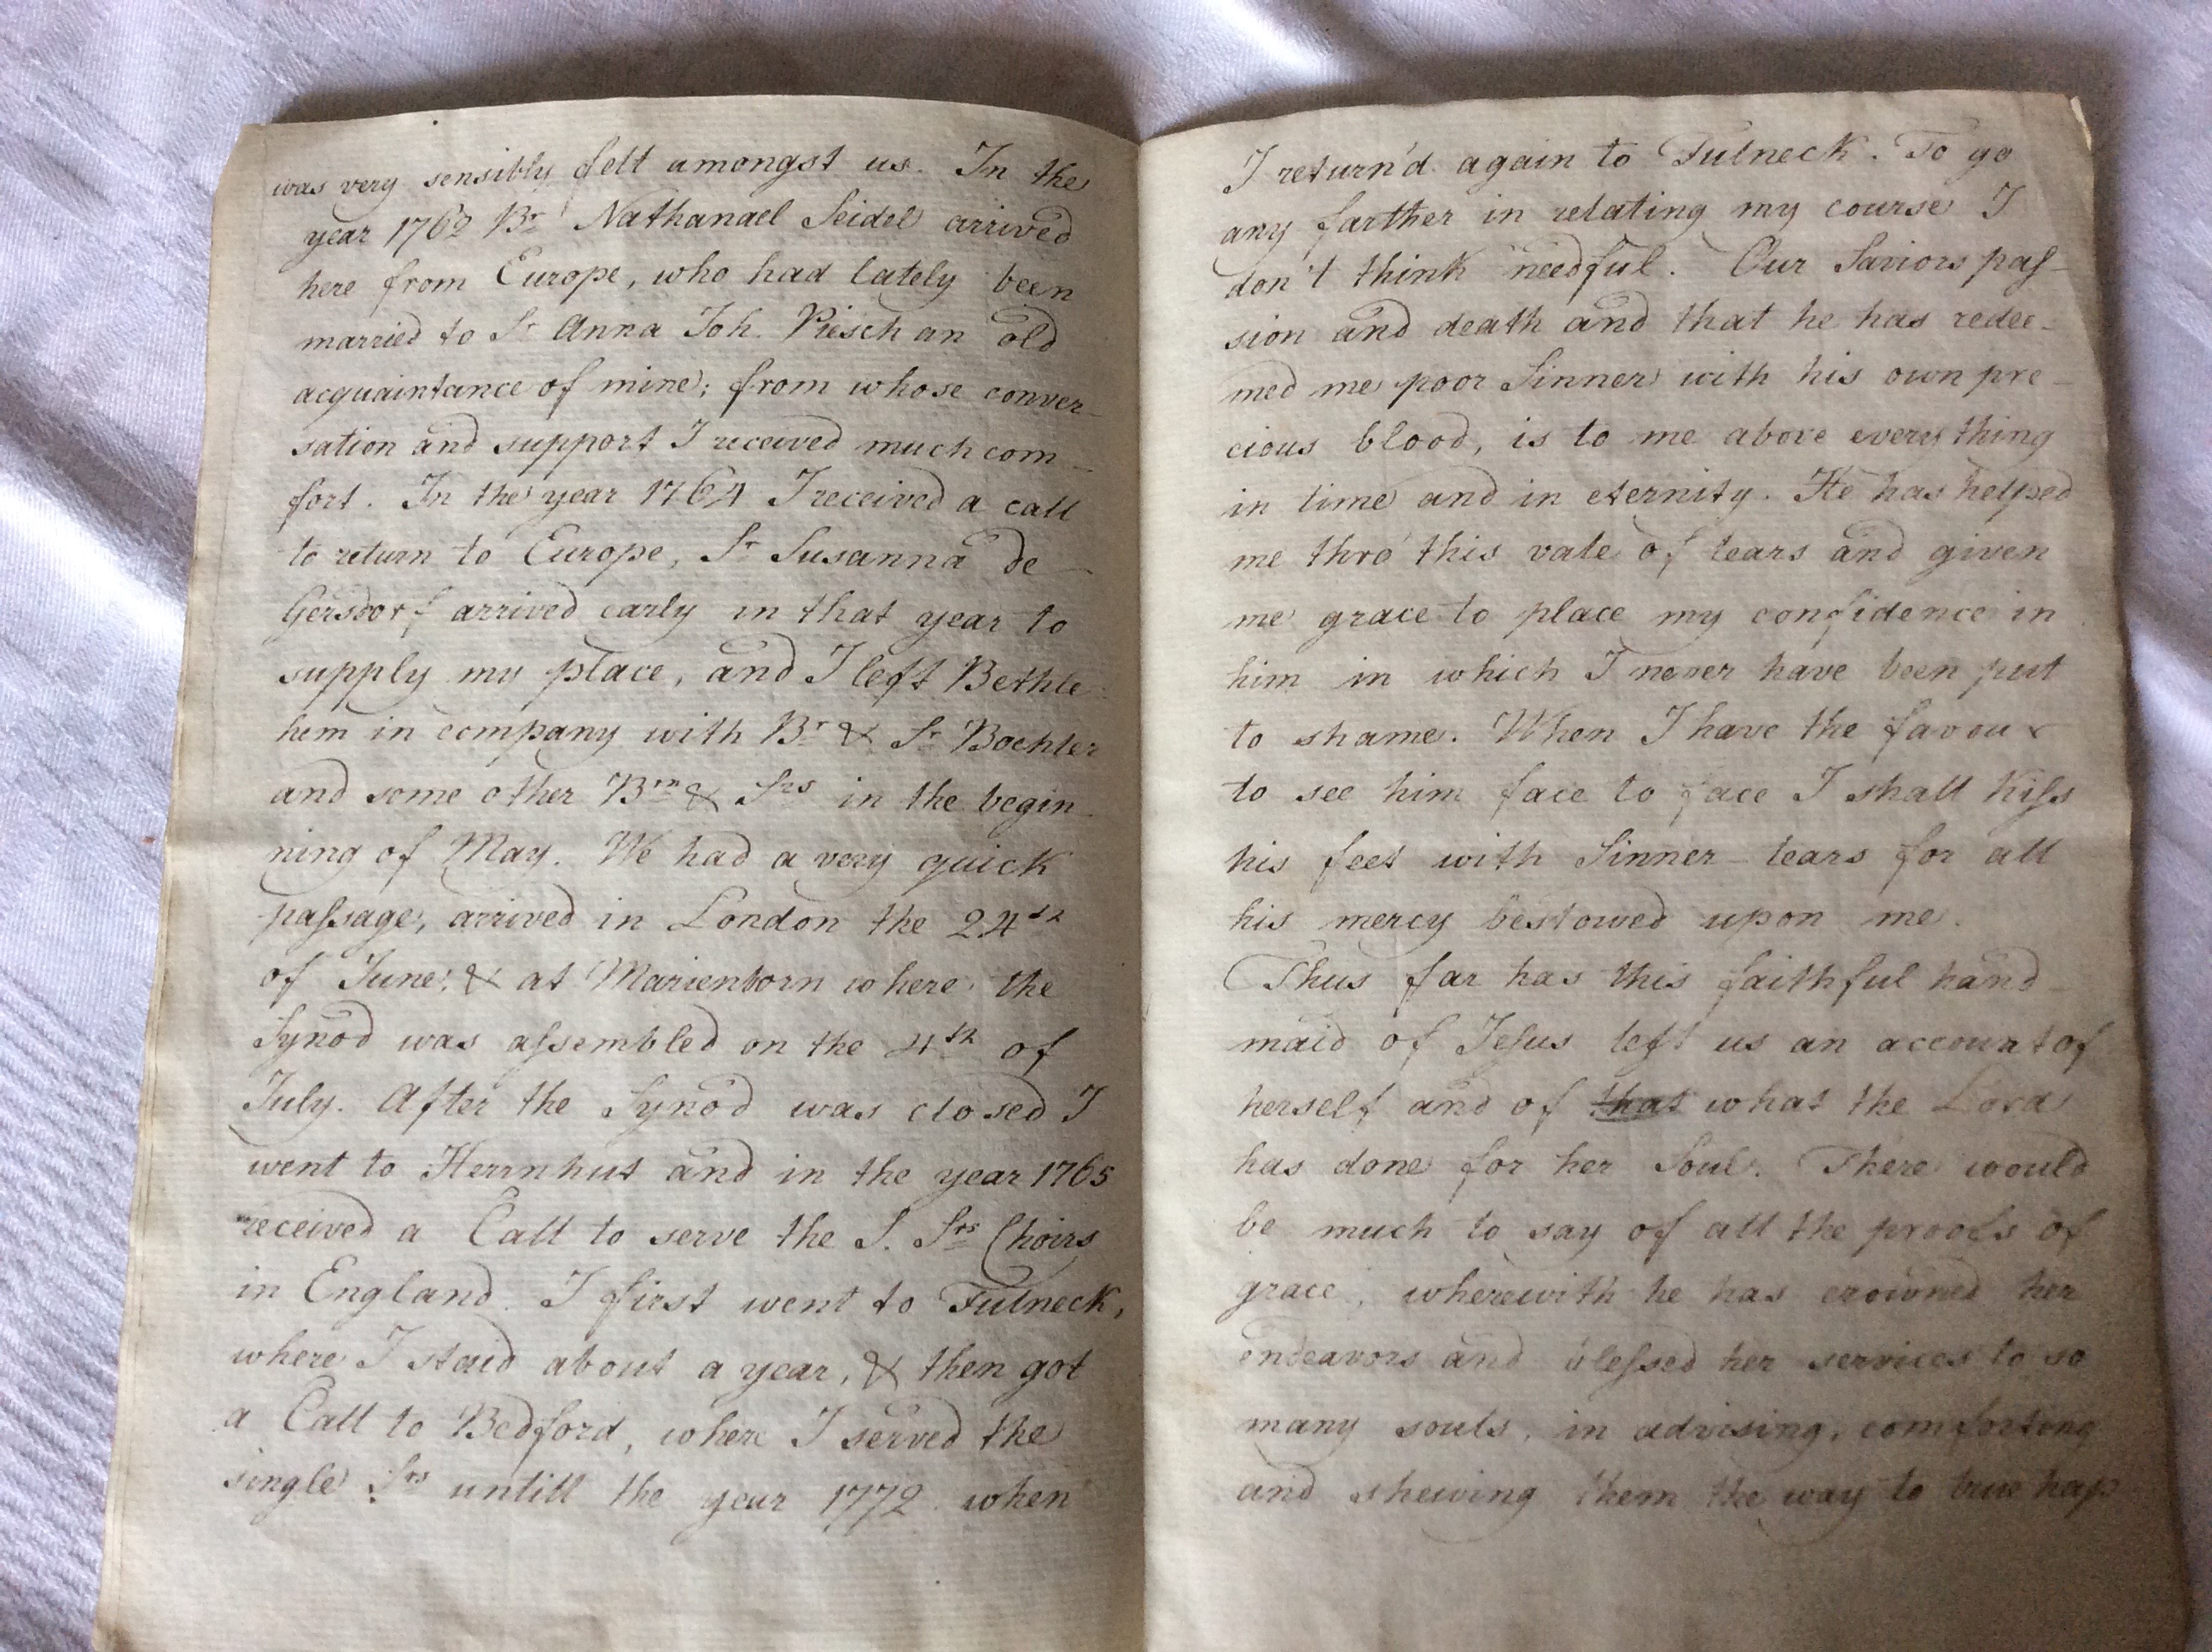 was very sensibly felt amongst us. In the
year 1762 Br Nathanael Seidel arrived
here from Europe, who had lately been
married to Sr Anna Joh. Piesch an old
acquaintance of mine; from whose conver-
sation and support I received much com-
fort. In the year 1764 I received a call
to return to Europe, Sr Susanna de
Gersdorf arrived early in that year to
supply my place, and I left Bethle-
hem in company with Br & Sr Boehler
and some other Brn & Srs in the begin-
ning of May. We had a very quick
paſsage, arrived in London the 24th
of June, & at Marienborn where the
Synod was aſsembled on the 4th of
July. After the Synod was closed I
went to Herrnhut and in the year 1765
received a Call to serve the S. Srs Choirs
in England. I first went to Fulneck,
where I staid about a year, & then got
a Call to Bedford, where I served the
single Srs untill the year 1772 when
I return'd again to Fulneck. To go
any farther in relating my course I
don't think needful. Our Saviors paſ-
sion and death and that he has redee-
med me poor Sinner with his own pre-
cious blood, is to me above every thing
in time and in eternity. He has helped
me thro' this vale of tears and given
me grace to place my confidence in
him in which I never have been put
to shame. When I have the favour
to see him face to face I shall kiſs
his feet with Sinner-tears for all
his mercy bestowed upon me.
Thus far has this faithful hand-
maid of Jeſus left us an account of
herself and of that what the Lord
has done for her Soul. There would
be much to say of all the proofs of
grace, wherewith he has crowned her
endeavors and bleſsed her services to so
many souls, in advising, comforting
and shewing them the way to true hap